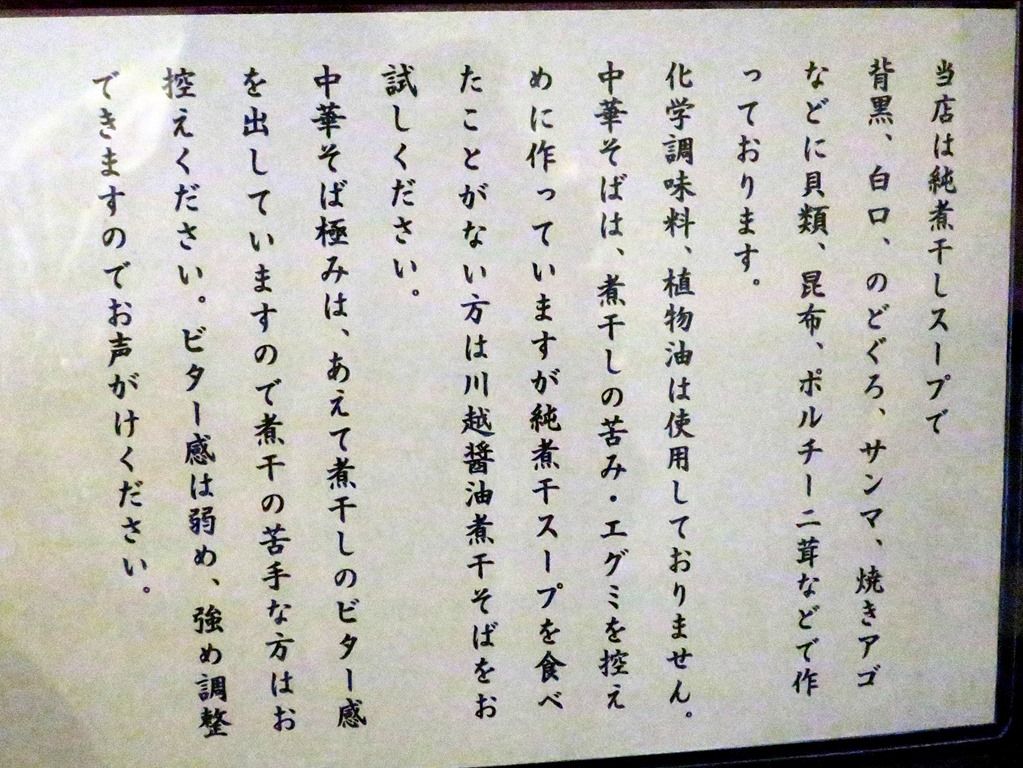 当店は純煮干しスープで
背黒、白口、のどぐろ、サンマ、焼きアゴ
などに貝類、昆布、ポルチーニ茸などで作
っております。
化学調味料、植物油は使用しておりません。
中華そばは、煮干しの苦み・エグミを控え
めに作っていますが純煮干スープを食べ
たことがない方は川越醤油煮干そばをお
試しください。
中華そば極みは、あえて煮干しのビター感
を出していますので煮干の苦手な方はお
控えください。ビター感は弱め、強め調整
できますのでお声がけください。